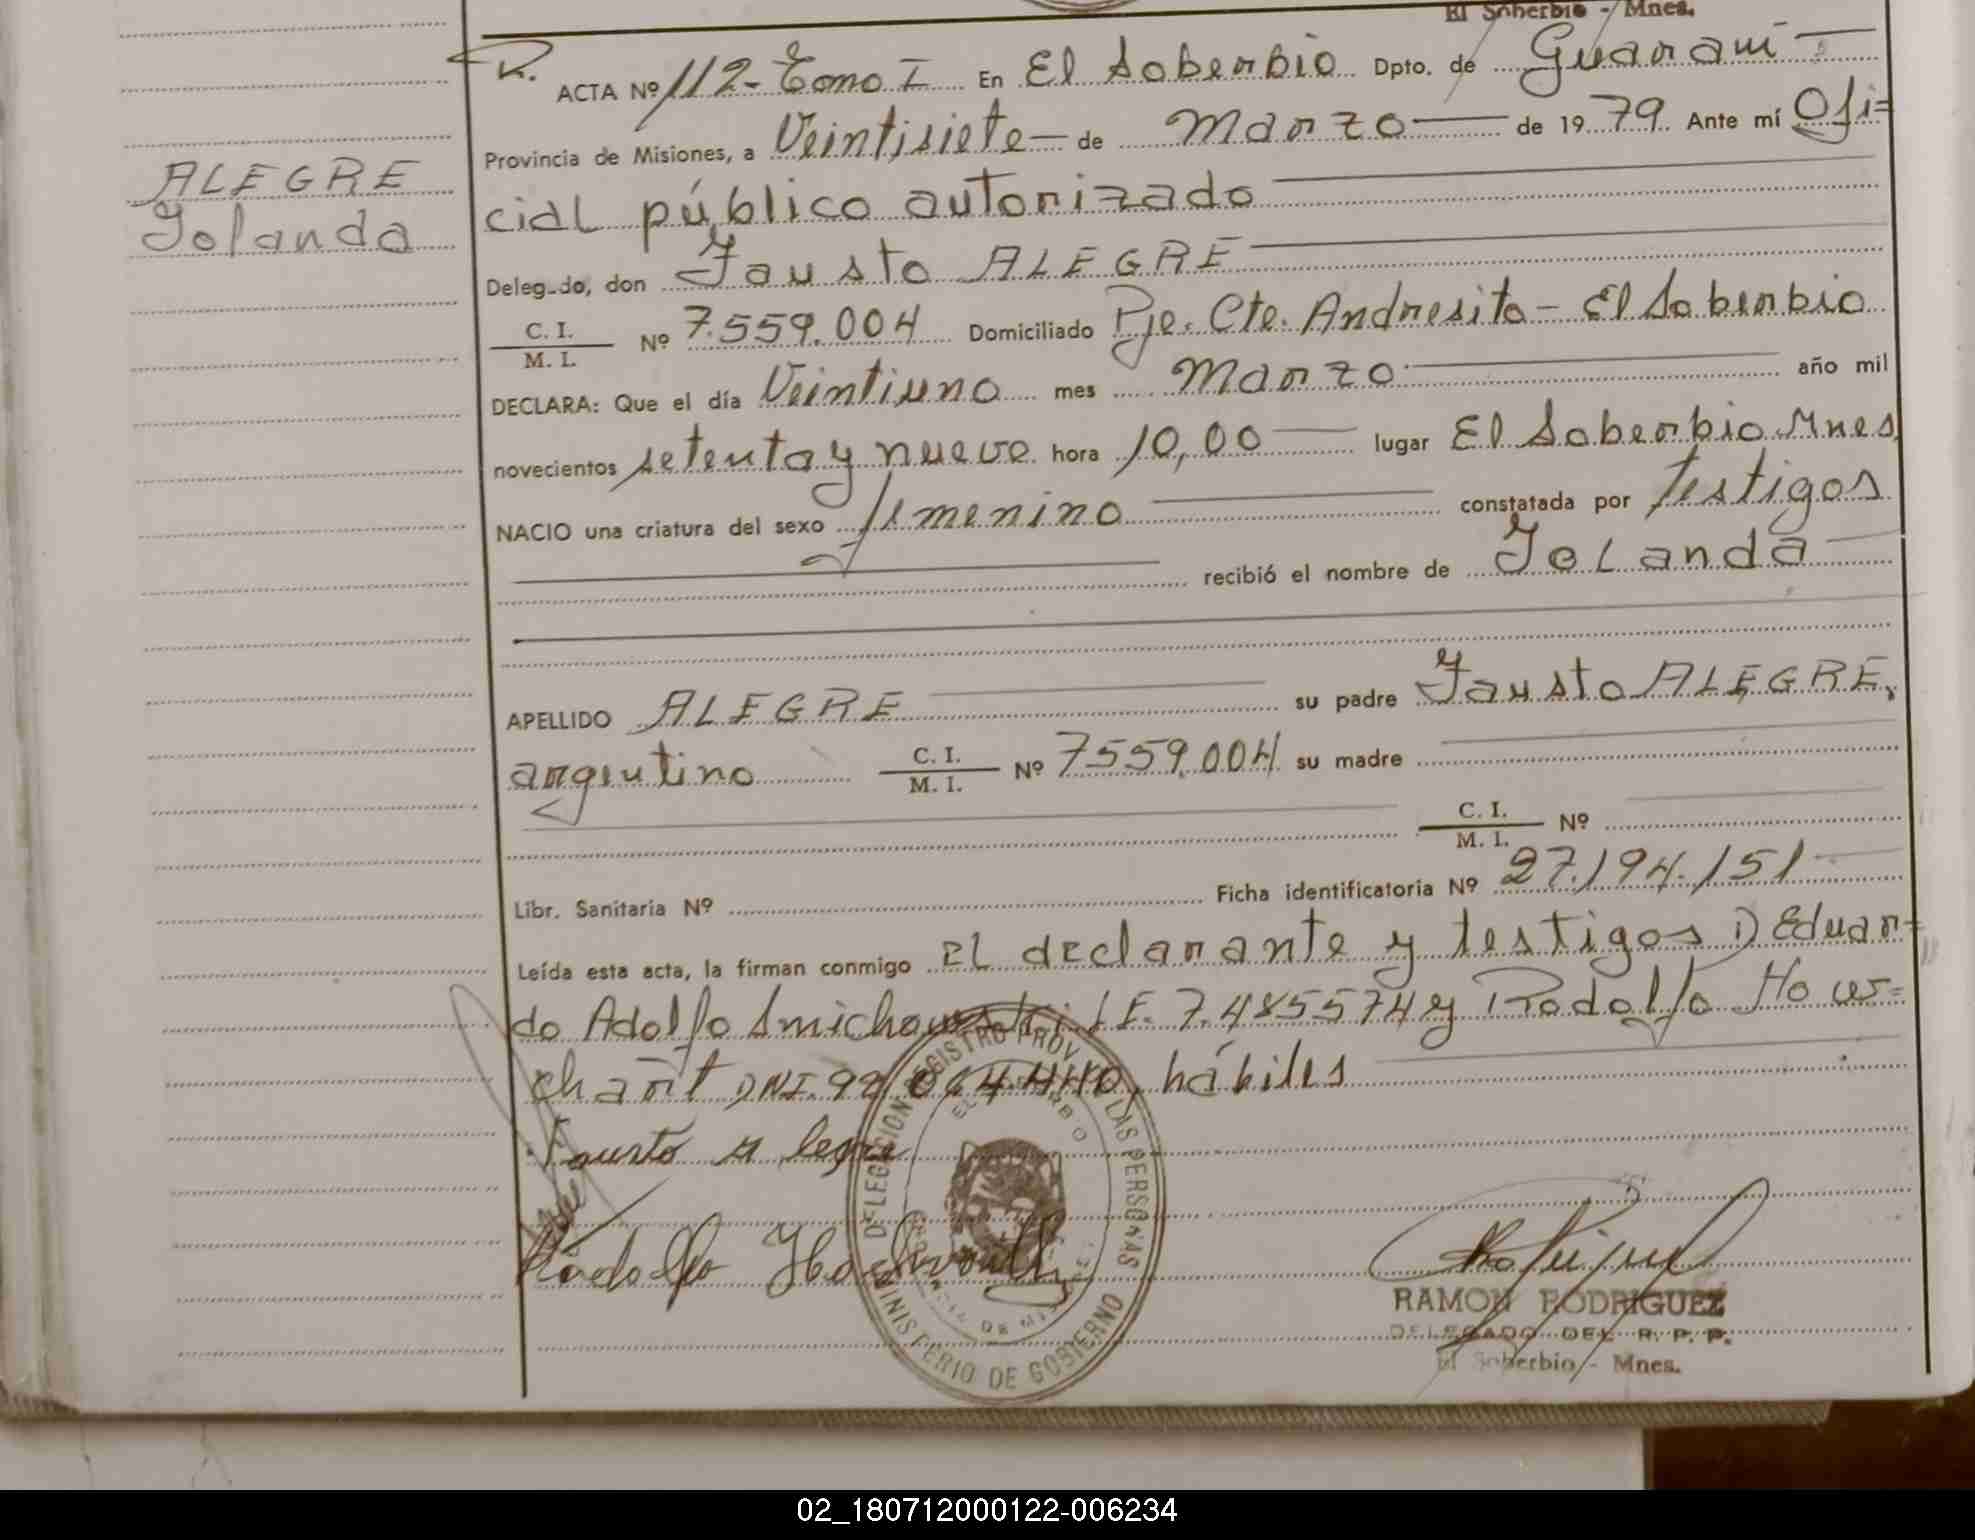 El Soberbio - Mnes.
R. ACTA Nº 112- Tomo I En El Soberbio Dpto. de Guaraní
Provincia de Misiones, a Veintisiete de Marzo de 1979. Ante mí Ofi=
cial público autorizado
ALEGRE
Yolanda
Delegado, don Fausto ALEGRE
C. I.
M. I. Nº 7.559.004 Domiciliado Pje. Cte. Andresito - El Soberbio
DECLARA: Que el día Veintiuno mes Marzo año mil
novecientos setenta y nueve hora 10,00 lugar El Soberbio Mnes
NACIO una criatura del sexo femenino constatada por testigos
recibió el nombre de Yolanda
APELLIDO ALEGRE su padre Fausto ALEGRE,
argentino C. I. M. I. Nº 7559.004 su madre
C. I. M. I. Nº
Libr. Sanitaria Nº Ficha identificatoria Nº 27.194.151
Leída esta acta, la firman conmigo El declarante y testigos D Eduar=
do Adolfo L.E. 7.485574 y Rodolfo
DNI. hábiles
Fausto Alegre
Rodolfo
DELEGACION REGISTRO PROV. LAS PERSONAS
MINISTERIO DE GOBIERNO
RAMON RODRIGUEZ
DELEGADO DEL R. P. P.
El Soberbio - Mnes.
02_180712000122-006234